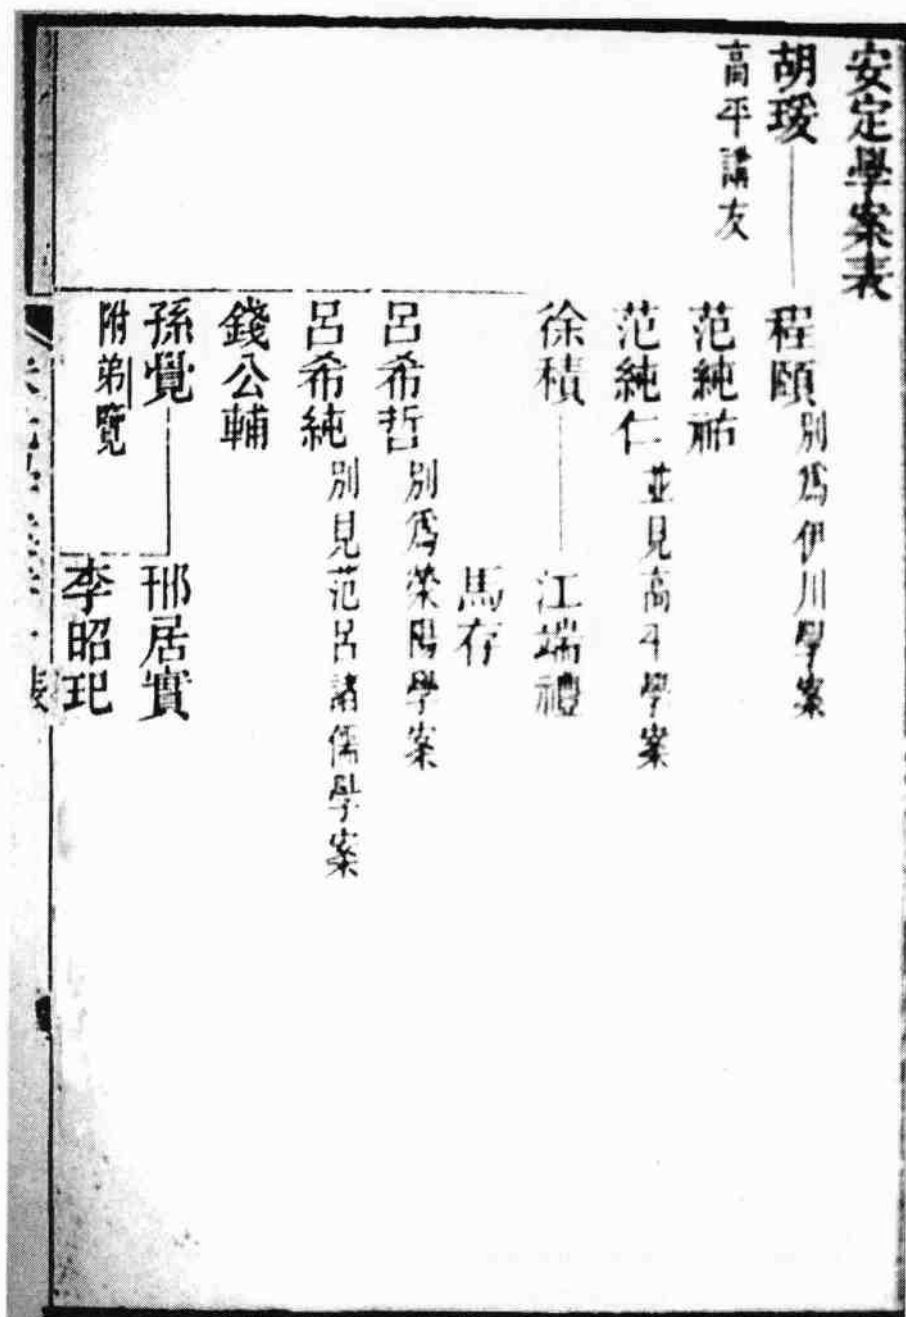 安定學案表
胡瑗
高平講友
程頤 別爲伊川學案
范純祐
范純仁 並見高平學案
徐積
江端禮
馬存
呂希哲 別爲滎陽學案
呂希純 別見范呂諸儒學案
錢公輔
孫覺
附弟覽
邢居實
李昭玘